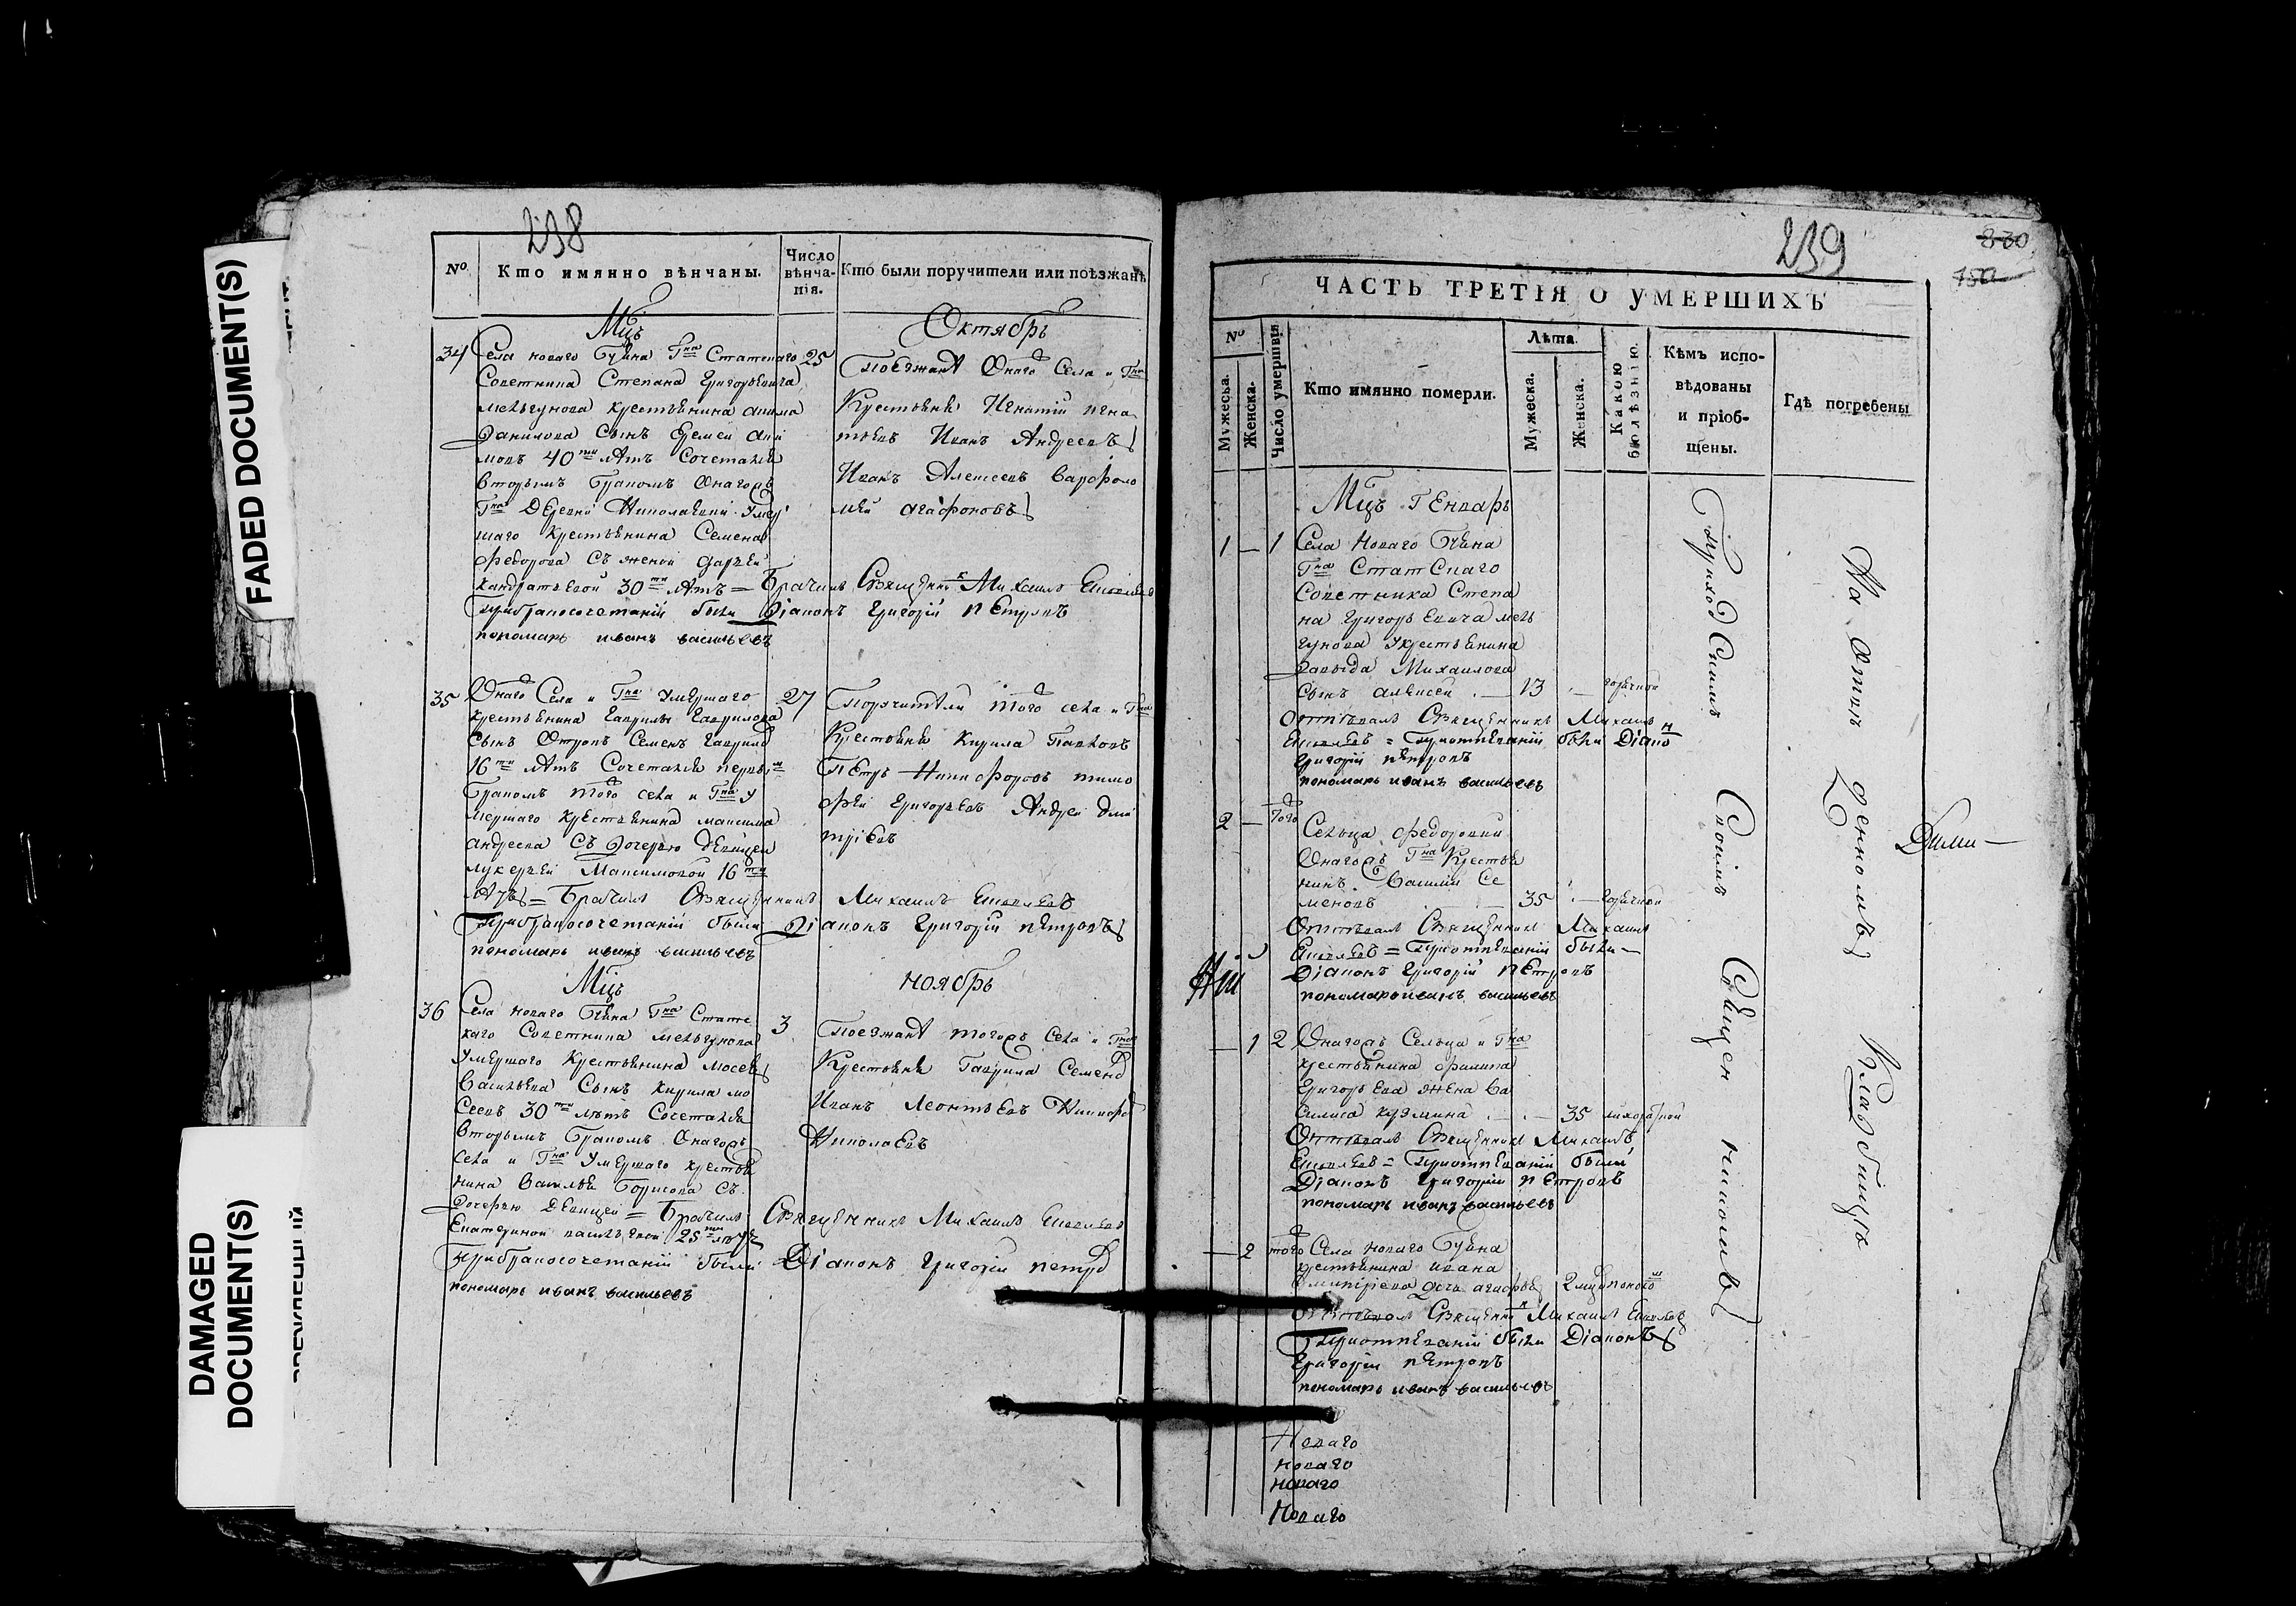 FADED DOCUMENT(S)
DAMAGED
DOCUMENT(S)
238
№
Кто имянно вѣнчаны.
Число
вѣнча-
нія.
Кто были поручители или поѣзжанѣ
Мцъ
Октябрь
34
Села новаго
Гна Статскаго
Советника Степана Григорьевича
мельгунова крестьянина акима
Данилова сынъ Еремей аки
мовъ 40 ти лѣтъ Сочетался
вторымъ бракомъ Онагожъ
Гна Деревни Николаевки Умер
шаго крестьянина Семена
федорова съ женой дарьей
кандратьевой 30 ти лѣтъ = Брачилъ Священникъ Михаилъ
прибракосочетаніи были Діаконъ Григорій Петровъ
пономарь иванъ васильевъ
25
поезжанѣ Онаго Села и Гна
Крестьяне Игнатій игна
тьевъ Иванъ Андреевъ
Иванъ Алексеевъ варфоло
мей агафоновъ
35
Онаго Села и Гна умершаго
крестьянина Гаврилы Гаврилова
сынъ Отрокъ Семенъ Гаврило
16 ти лѣтъ Сочетался первымъ
бракомъ того села и Гна у
мершаго крестьянина максима
андреева съ Дочерью девицей
лукерьей Максимовой 16 ти
лѣтъ = Брачилъ Священникъ Михаилъ
прибракосочетаніи были Діаконъ Григорій петровъ
пономарь иванъ васильевъ
27
поручители того села и Гна
Крестьяне Кирила Павловъ
Петръ Никифоровъ тимо
фей григорьевъ Андрей дми
тріевъ
Мцъ
ноябрь
36
Села новаго
Гна Статс
каго Советника мельгунова
Умершаго Крестьянина мосея
Васильева Сынъ кирила мо
сеевъ 30 ти лѣтъ Сочетался
вторымъ бракомъ Онагожъ
села и Гна Умершаго крестья
нина Василья Борисова съ
Дочерью Девицей = Брачилъ Священникъ Михаилъ
Екатериной васильевой 25 ти лѣтъ
прибракосочетаніи были Діаконъ Григорій петро
пономарь иванъ васильевъ
3
поезжанѣ тогожъ Села и Гна
Крестьяне Гаврила Семено
Иванъ Леонтьевъ Никифоръ
Николаевъ
239
830
ЧАСТЬ ТРЕТІЯ О УМЕРШИХЪ
№
Мужеска.
Женска.
Число умершвія
Кто имянно померли.
Лѣта.
Мужеска.
Женска.
Какою
болѣзнію.
Кѣмъ испо-
вѣдованы
и пріоб-
щены.
Гдѣ погребены
Мцъ Генварь
1 — 1 Села Новаго
Гна Статскаго
Советника Степа
на Григорьевича мель
гунова Укрестьянина
Давыда Михаилова
сынъ алексей — 13 — горячкой
Отпевалъ Священникъ Михаилъ
приотпеваніи были Діаконъ
Григорій петровъ
пономарь иванъ васильевъ
2 — того
Сельца федоровки
Онагожъ Гна Крестья
нинъ Василій Се
меновъ 35 — горячкой
Отпевалъ Священникъ Михаилъ
приотпеваніи были
Діаконъ Григорій Петровъ
пономарь иванъ васильевъ
— 1 2 Онагожъ Сельца и Гна
крестьянина филипа
Григорьева жена Ва
силиса кузмина — 35
Отпевалъ Священникъ Михаилъ
приотпеваніи были
Діаконъ Григорій петровъ
пономарь иванъ васильевъ
— 2 того Села новаго
крестьянина ивана
Дмитріева дочь агафья 2
Отпевалъ Священникъ Михаилъ
приотпеваніи были Діаконъ
Григорій петровъ
пономарь иванъ васильевъ
Новаго
новаго
новаго
Новаго
Приходскимъ Своимъ Священникомъ
На отведенномъ Кладбищѣ